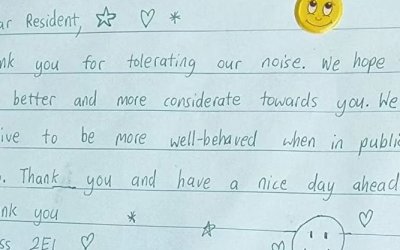 ar Resident,
nk you for tolerating our noise. We hope
better and more considerate towards you. We
ive to be more well-behaved when in public
. Thank you and have a nice day ahead
nk you
ss 2E1